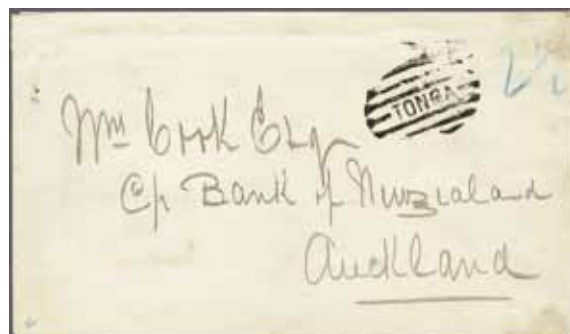 TONGA
2½
Wm Cook Esq
C/o Bank of Newzealand
Auckland